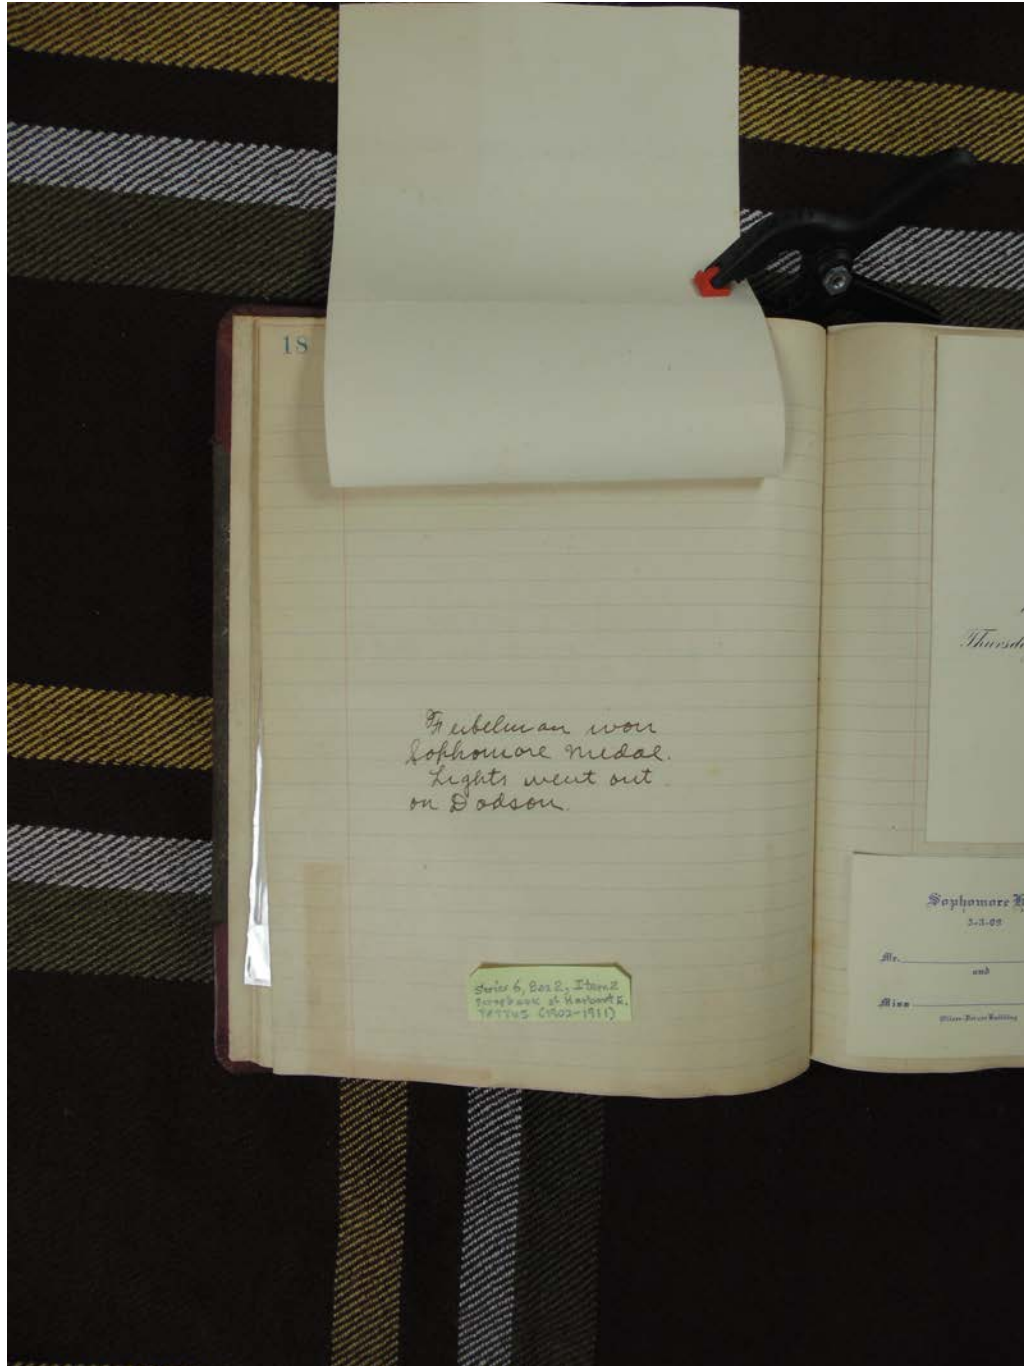 18
Feibelman won
Sophomore medal.
Lights went out
on Dodson.
Series 6, Box 2, Item 2
Scrapbook of Herbert E.
(1902-1911)
Thursd
Sophomore H
Mr.
and
Miss
Building